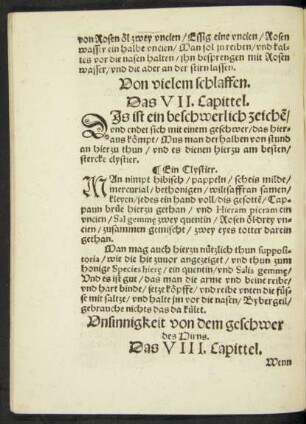 von Rosen öl zwey vncien/ Essig eine vncien/ Rosen
wasser ein halbe vncien/ Man sol jn reiben/ vnd kal-
tes vor die nasen halten/ jhn besprengen mit Rosen
wasser/ vnd die ader an der stirn lassen.
Von vielem schlaffen.
Das VII. Capittel.
Das ist ein beschwerlich zeichẽ/
vnd endet sich mit einem geschwer/ das hier-
aus kömpt/ Mus man der halben von stund
an hierzu thun/ vnd es dienen hierzu am besten/
stercke clystier.
¶ Ein Clystier.
MAn nimpt hibisch/ pappeln/ scheis milde/
mercurial/ bethonigen/ wiltsaffran samen/
kleyen/ jedes ein hand voll/ dis gesotten/ Cap-
paun brüe hierzu gethan/ vnd Hieram pieram ein
vncien/ Sal gemmę zwey quentin/ Rosen öl drey vn-
cien/ zusammen gemischt/ zwey eyes totter darein
gethan.
Man mag auch hierzu nützlich thun supposi-
toria/ wie die hie zuuor angezeiget/ vnd thun zum
honige Species hierę/ ein quentin/ vnd Salis gemmę/
Vnd es ist gut/ das man die arme vnd beine reibe/
vnd hart binde/ setze köpffe/ vnd reibe jhnen die füs-
se mit saltze/ vnd halte jm vor die nasen/ Bybergeil/
gebrauche nichts das da kület.
Vnsinnigkeit von dem geschwer
des Hirns.
Das VIII. Capittel.
Wenn